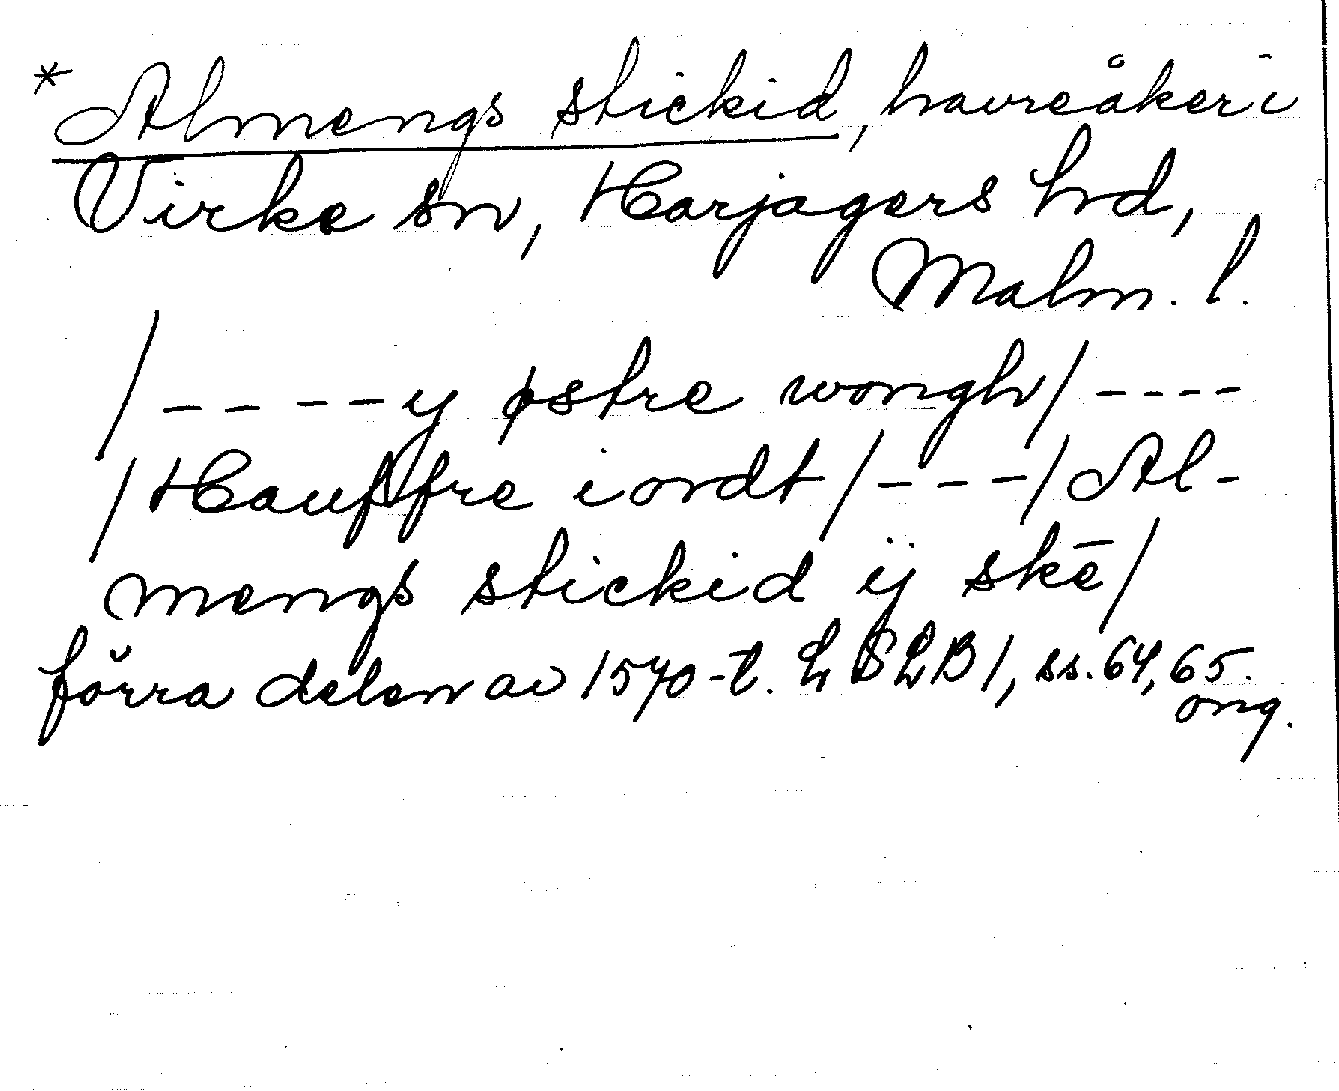 *Almengs stickid, havreåker i
Virke sn, Harjagers hd,
Malm. l.
/----y østre wongh/----
/Hauffre iordt/---/Al-
mengs stickid ÿ skē/
förra delen av 1570-t. LSLB1, ss. 64, 65.
ong.